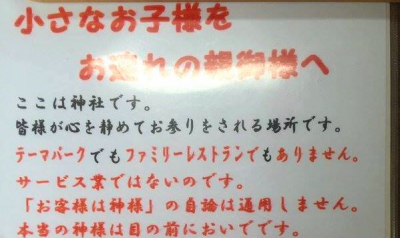 小さなお子様を
お連れの親御様へ
ここは神社です。
皆様が心を静めてお参りをされる場所です。
テーマパークでもファミリーレストランでもありません。
サービス業ではないのです。
「お客様は神様」の自論は通用しません。
本当の神様は目の前においでです。